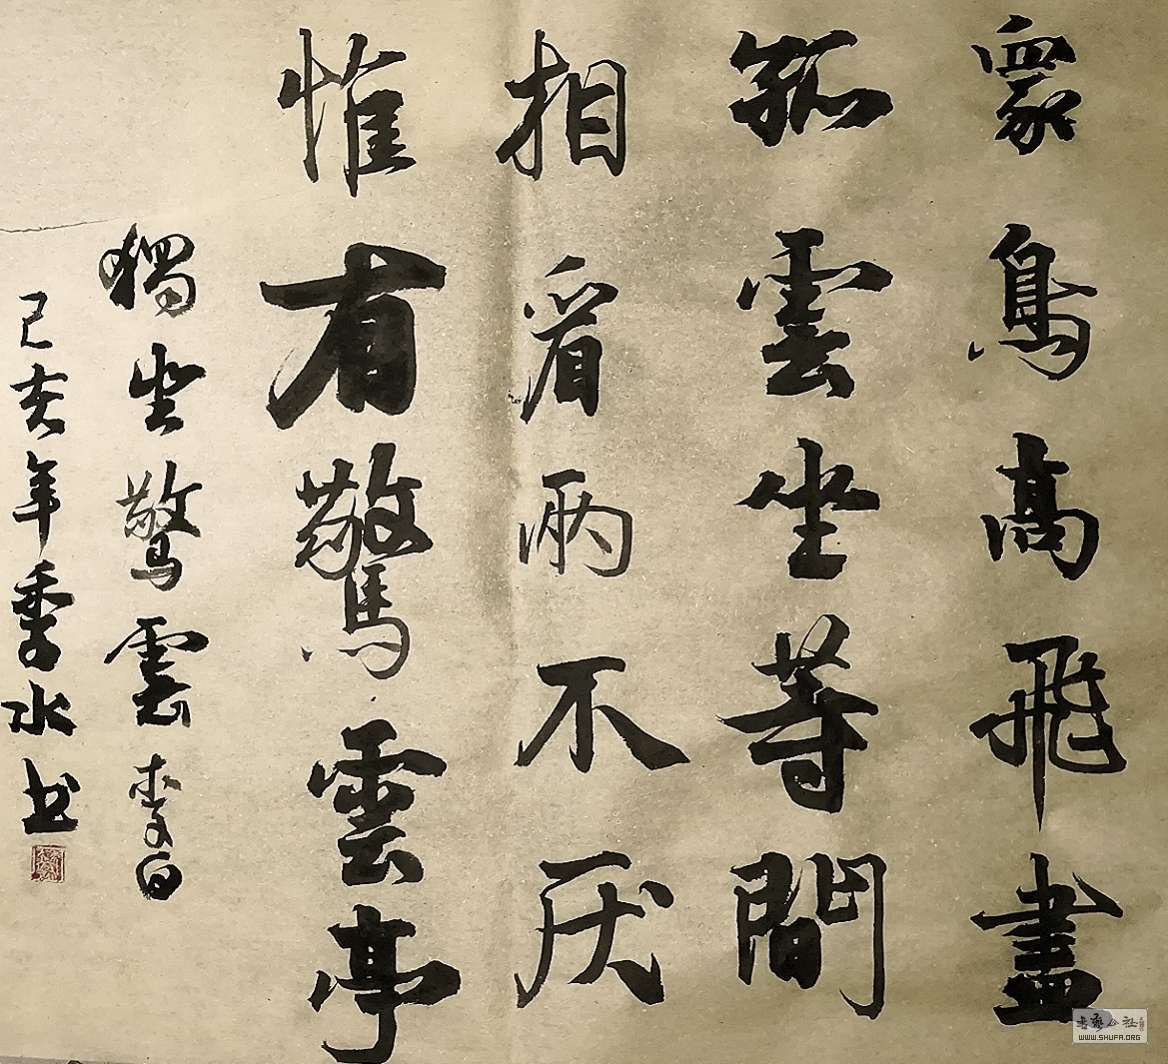 衆鳥高飛盡
孤雲坐等間
相看兩不厌
惟有驚雲亭
獨坐驚雲李白
己亥年季水书
WWW.SHUFA.ORG